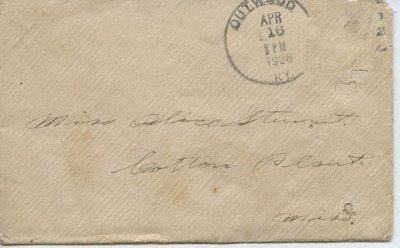 OUTWOOD.
APR
16
3 PM
1926
KY.
Miss Alice Stewart.
Cotton Plant.
Miss.